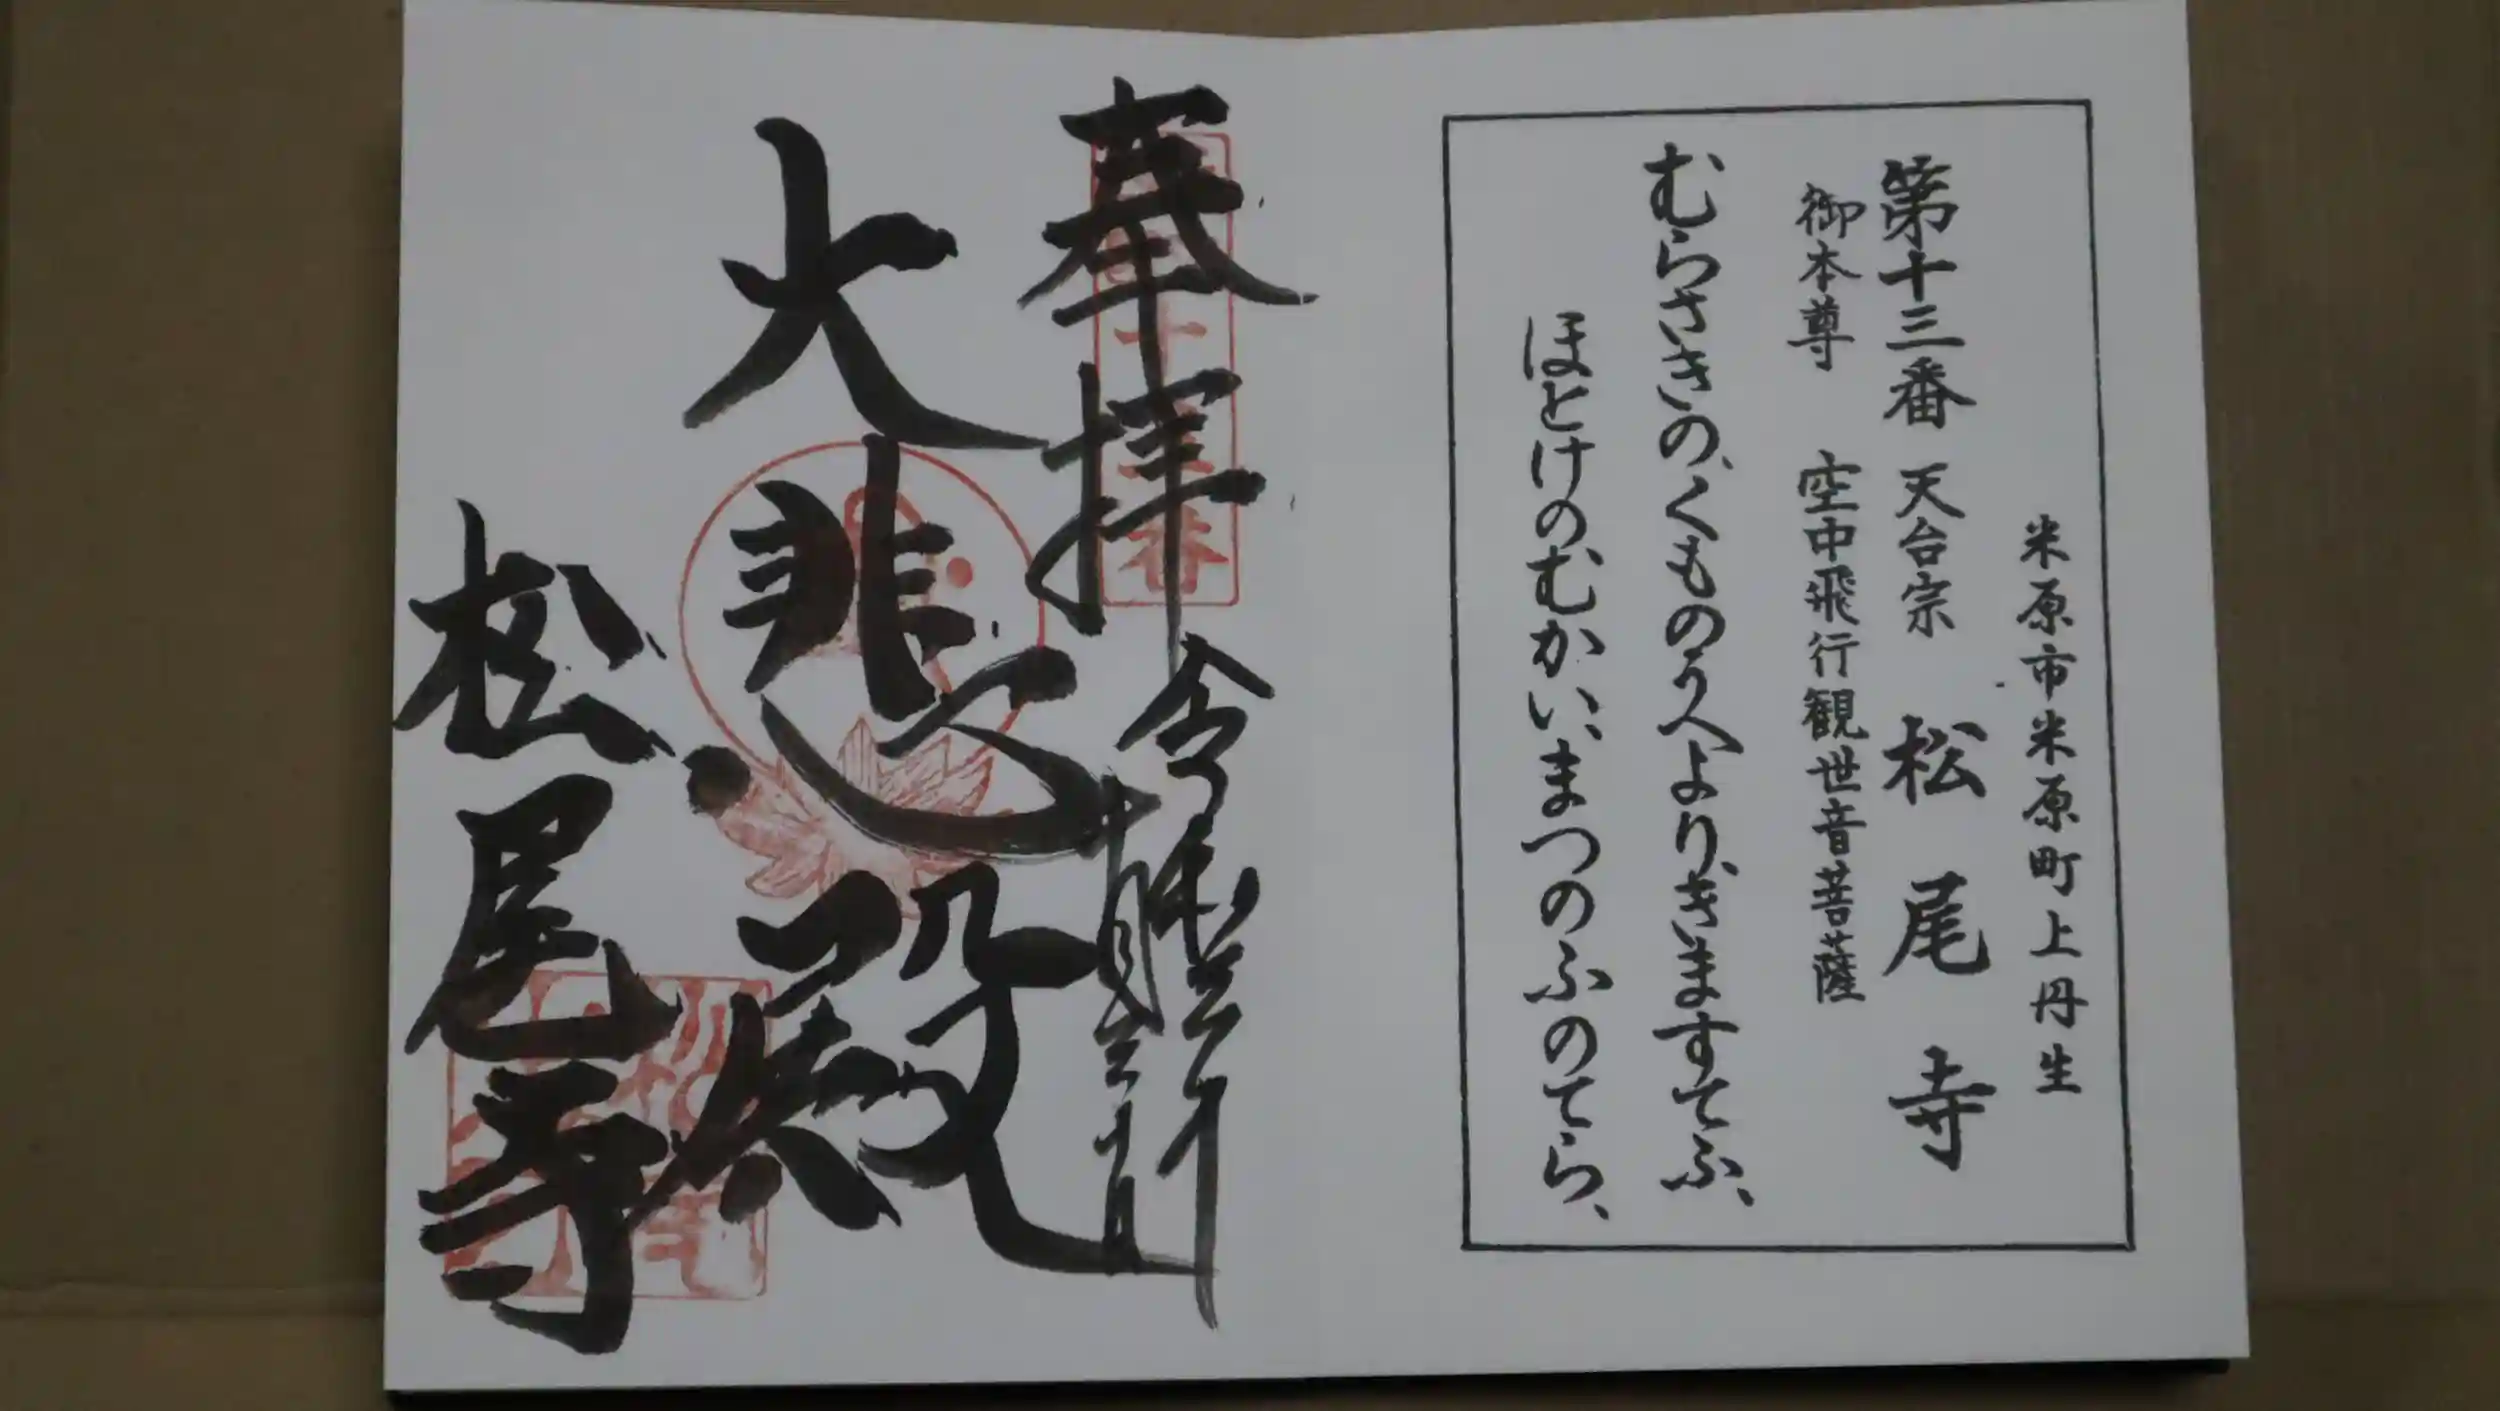 米原市米原町上丹生
第十三番 天台宗 松尾寺
御本尊 空中飛行観世音菩薩
むらさきの、くものうへより、きますてふ、
ほとけのむかい、まつのふのてら、
奉拝
大悲殿
松尾寺